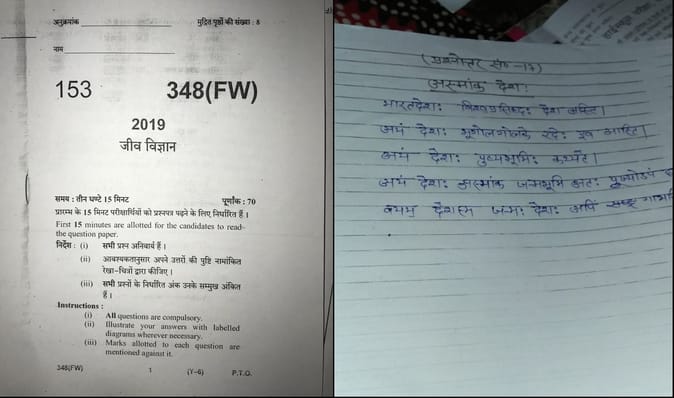 अनुक्रमांक
मुद्रित पृष्ठों की संख्या : 8
नाम
153
348(FW)
2019
जीव विज्ञान
समय : तीन घण्टे 15 मिनट
पूर्णांक : 70
प्रारम्भ के 15 मिनट परीक्षार्थियों को प्रश्नपत्र पढ़ने के लिए निर्धारित हैं ।
First 15 minutes are allotted for the candidates to read-
the question paper.
निर्देश : (i) सभी प्रश्न अनिवार्य हैं ।
(ii) आवश्यकतानुसार अपने उत्तरों की पुष्टि नामांकित
रेखा-चित्रों द्वारा कीजिए ।
(iii) सभी प्रश्नों के निर्धारित अंक उनके सम्मुख अंकित
हैं ।
Instructions :
(i) All questions are compulsory.
(ii) Illustrate your answers with labelled
diagrams wherever necessary.
(iii) Marks allotted to each question are
mentioned against it.
348(FW)
1
(Y-6)
P.T.O.
अस्मांक देशः
भारतदेशः देश अस्ति।
अयं देशः इव अस्ति।
अयं देशः पुण्यभूमिः कथ्यते।
अयं देशः अस्मांक जन्मभूमि अतः
देशस्य जनाः